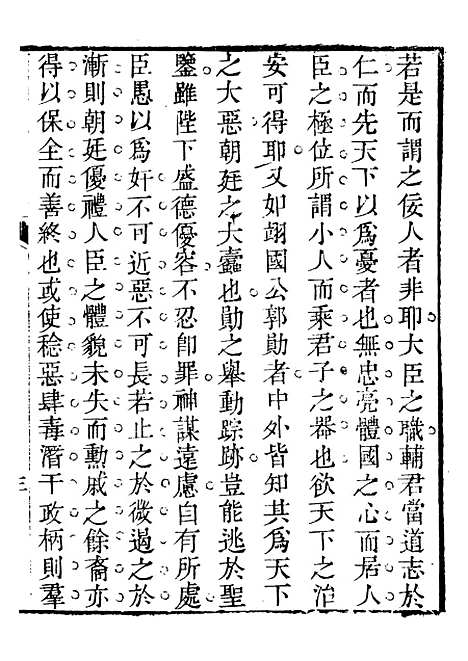 若是而謂之佞人者非耶大臣之職輔君當道志於
仁而先天下以爲憂者也無忠亮體國之心而居人
臣之極位所謂小人而乘君子之器也欲天下之治
安可得耶又如翊國公郭勛者中外皆知其爲天下
之大惡朝廷之大蠹也勛之舉動踪跡豈能逃於聖
鑒雖陛下盛德優容不忍卽罪神謀遠慮自有所處
臣愚以爲奸不可近惡不可長若止之於微遏之於
漸則朝廷優禮人臣之體貌未失而勳戚之餘裔亦
得以保全而善終也或使稔惡肆毒潛干政柄則羣
三